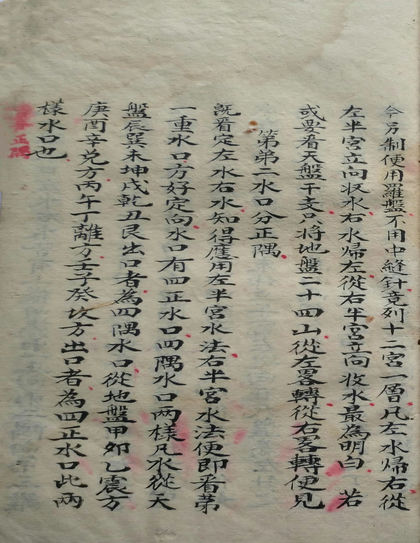 今另制使用羅盤不用中縫針竟列十二宮一層凡左水歸右從
左半宮立向收水右水歸左從右半宮立向收水最為明白若
或要看天盤干支只將地盤二十四山從左畧轉從右畧轉便見
第第二水口分正隅
既看定左水右水知得應用左半宮水法右半宮水法便即看第
一重水口方好定向水口有四正水口四隅水口兩樣凡水從天
盤辰巽未坤戌乾丑艮出口者為四隅水口從地盤甲卯乙震方
庚酉辛兌方丙午丁離方壬子癸坎方出口者為四正水口此兩
樣水口也
正隅